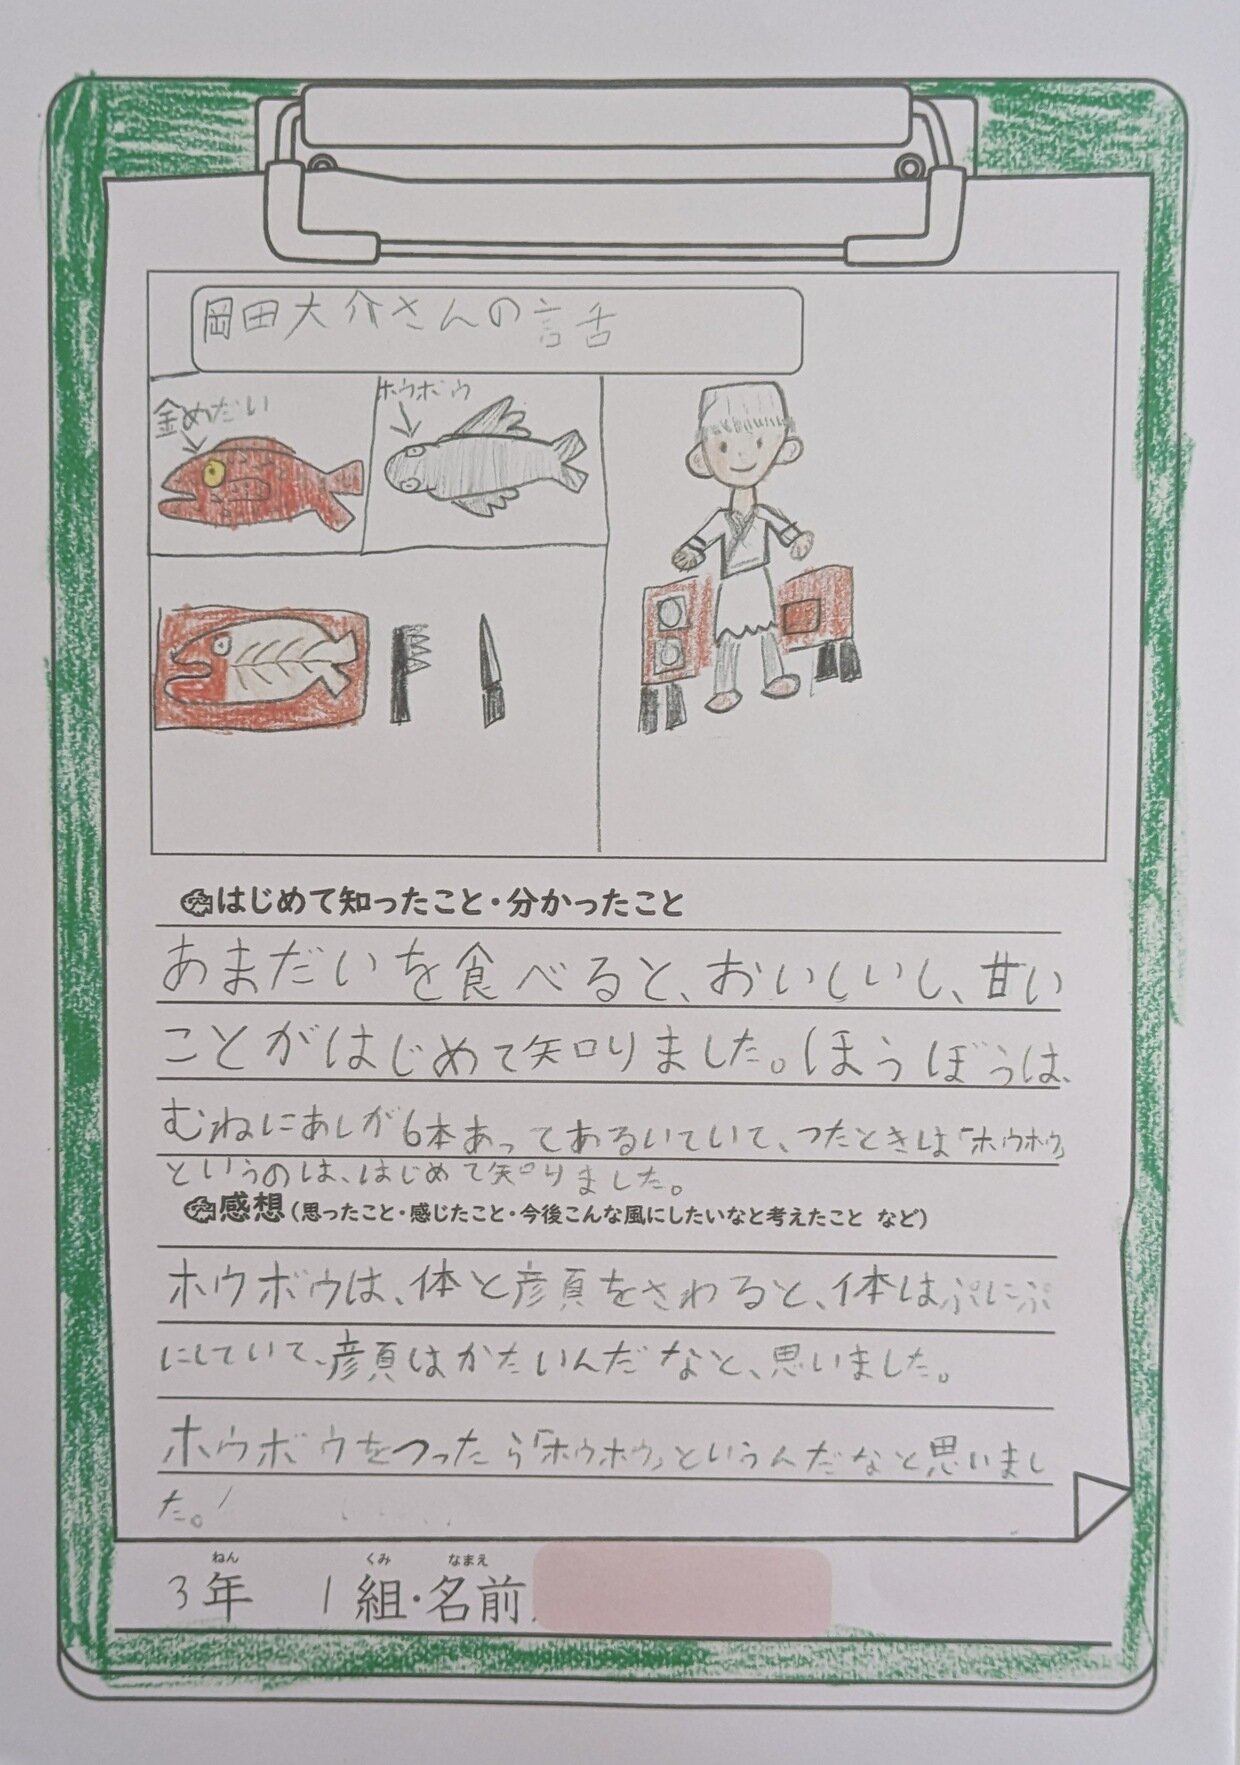 岡田大介さんの話
金めだい
ホウボウ
はじめて知ったこと・分かったこと
あまだいを食べると、おいしいし、甘い
ことがはじめて知りました。ほうぼうは、
むねにあしが6本あってあるいていて、つたときは「ホウホウ」
というのは、はじめて知りました。
感想(思ったこと・感じたこと・今後こんな風にしたいなと考えたこと など)
ホウボウは、体と顔をさわると、体はぷにぷ
にしていて、顔はかたいんだなと、思いました。
ホウボウをつったら「ホウホウ」というんだなと思いまし
た。
ねん くみ なまえ
3年 1組・名前